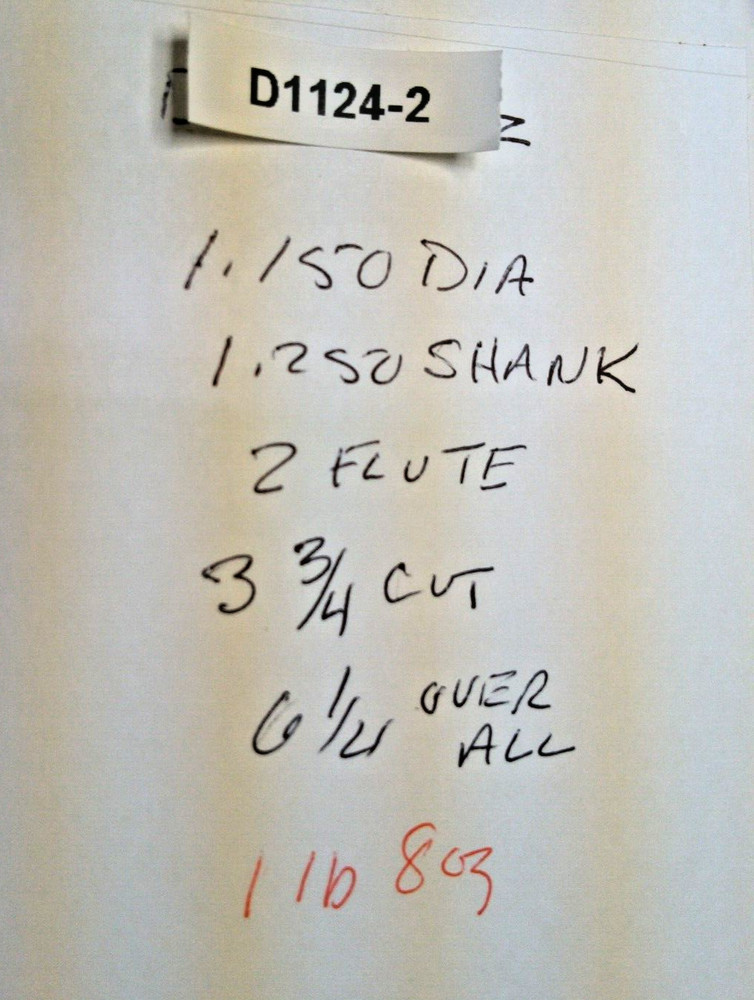 D1124-2
1.150 DIA
1.250 SHANK
2 FLUTE
3 3/4 CUT
6 1/4 OVER
ALL
1 lb 8oz